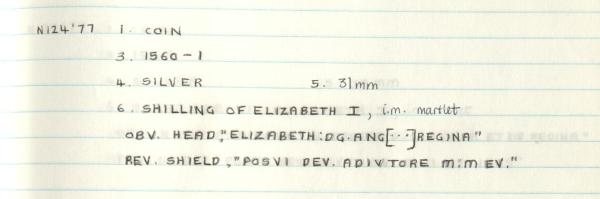 N124'77 1. COIN
3. 1560-1
4. SILVER 5. 31mm
6. SHILLING OF ELIZABETH I, i.m. martlet
OBV. HEAD, "ELIZABETH:DG.ANG[...]REGINA"
REV. SHIELD, "POSVI DEV. ADIVTORE M:M EV."